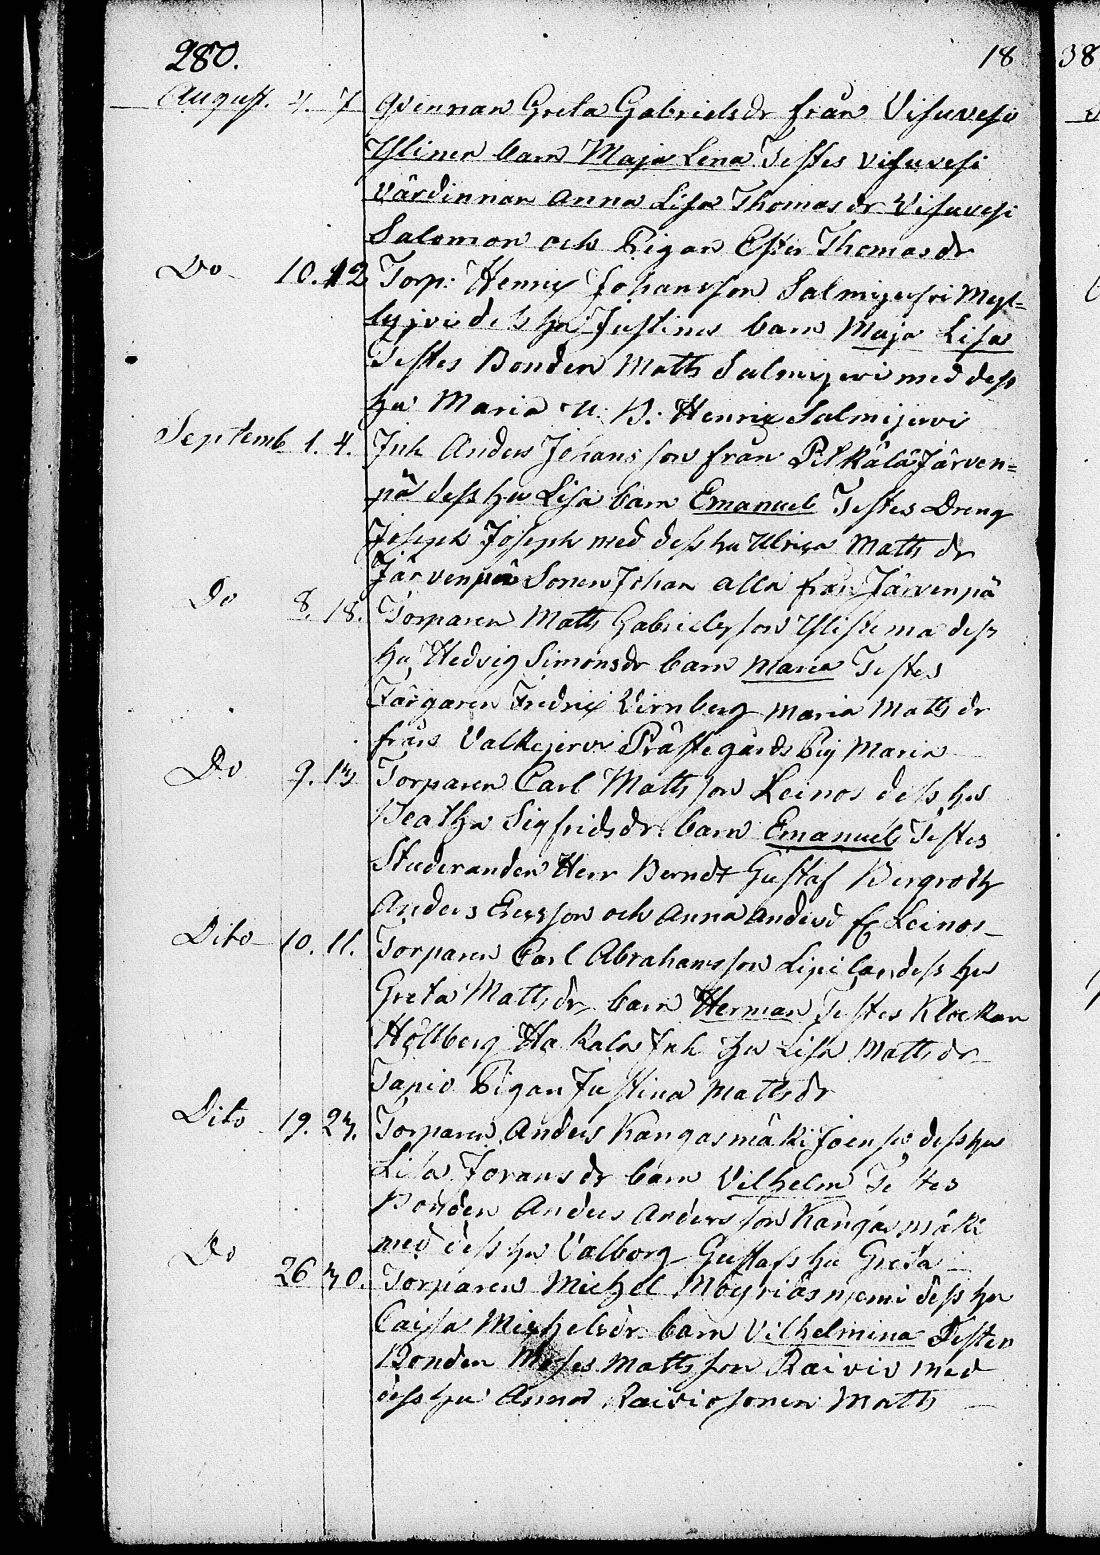 280. 18 38
August. 4. 7 Qvinnan Greta Gabrielsdr från Visuvesi
Yliner barn Maja Lena Testes Visuvesi
Värdinnan Anna Lisa Thomasdr Visuvesi
Salomon och Pigan Ester Thomasdr
Do 10. 12 Torp: Henrix Johansson Salmijerfvi Myl=
lyjvi dess hu Justina barn Maja Lisa
Testes Bonden Matts Salmijervi med dess
hu Maria u. B. Henrix Salmijervi
Septemb 1. 4. Inh Anders Johansson från Pilkälä Järven=
pä dess hu Lisa barn Emanuel Testes Dreng
Joseph Joseph med dess hu Ulrica Matts dr
Järvenpä Sonen Johan alla från Järvenpä
Do 8. 18. Torparen Matts Gabrielsson Ylistema dess
hu Hedvig Simonsdr barn Maria Testes
Färgaren Fredrix Virnberg Maria Matts dr
från Valkejervi Prästegårds Pig Maria
Do 9. 13 Torparen Carl Mattsson Leinos dess hu
Beatha Sigfridsdr barn Emanuel Testes
Studeranden Herr Berndt Gustaf Bergroth
Anders Ericsson och Anna Andersd fr Leinos
Dito 10. 11. Torparen Carl Abrahamsson Lipilas dess hu
Greta Mattsdr barn Herman Testes Klockan
Hollberg Hakala Inh hu Lisa Mattsdr
Tapio Pigan Justina Mattsdr
Dito 19. 23. Torparen Anders Kangasmäki Joensu dess hu
Lisa Joransdr barn Vilhelm Testes
Bonden Anders Andersson Kangasmäki
med dess hu Valborg Gustafs hu Greta
Do 26 30. Torparen Michel Möyriäsniemi dess hu
Caisa Michelsdr barn Vilhelmina Testes
Bonden Moses Mattsson Raivio med
dess hu Anna Raivio sonen Matts